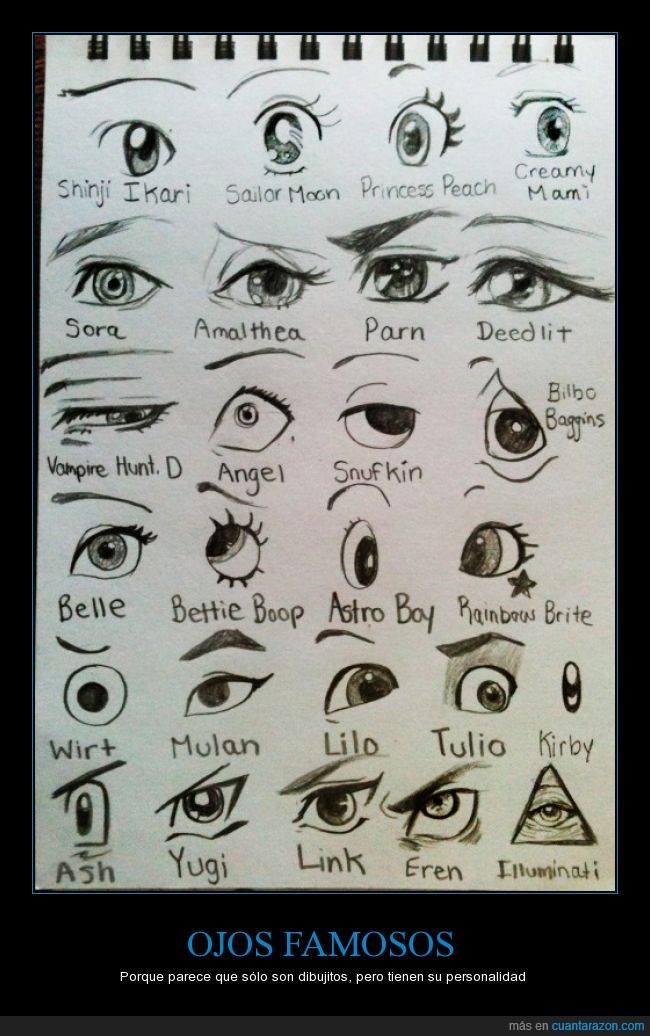 Shinji Ikari
Sailor Moon
Princess Peach
Creamy
Mami
Sora
Amalthea
Parn
Deedlit
Vampire Hunt. D
Angel
Snufkin
Bilbo
Baggins
Belle
Bettie Boop
Astro Boy
Rainbow Brite
Wirt
Mulan
Lilo
Tulio
Kirby
Ash
Yugi
Link
Eren
Illuminati
OJOS FAMOSOS
Porque parece que sólo son dibujitos, pero tienen su personalidad
más en cuantarazon.com